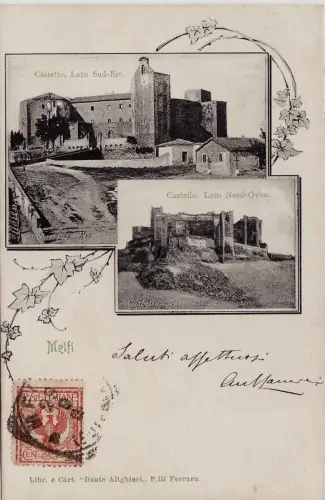 Castello. Lato Sud-Est.
Castello. Lato Nord-Ovest.
Melfi
Saluti affettuosi
POSTE ITALIANE
Libr. e Cart. "Dante Alighieri,, F.lli Ferrara.